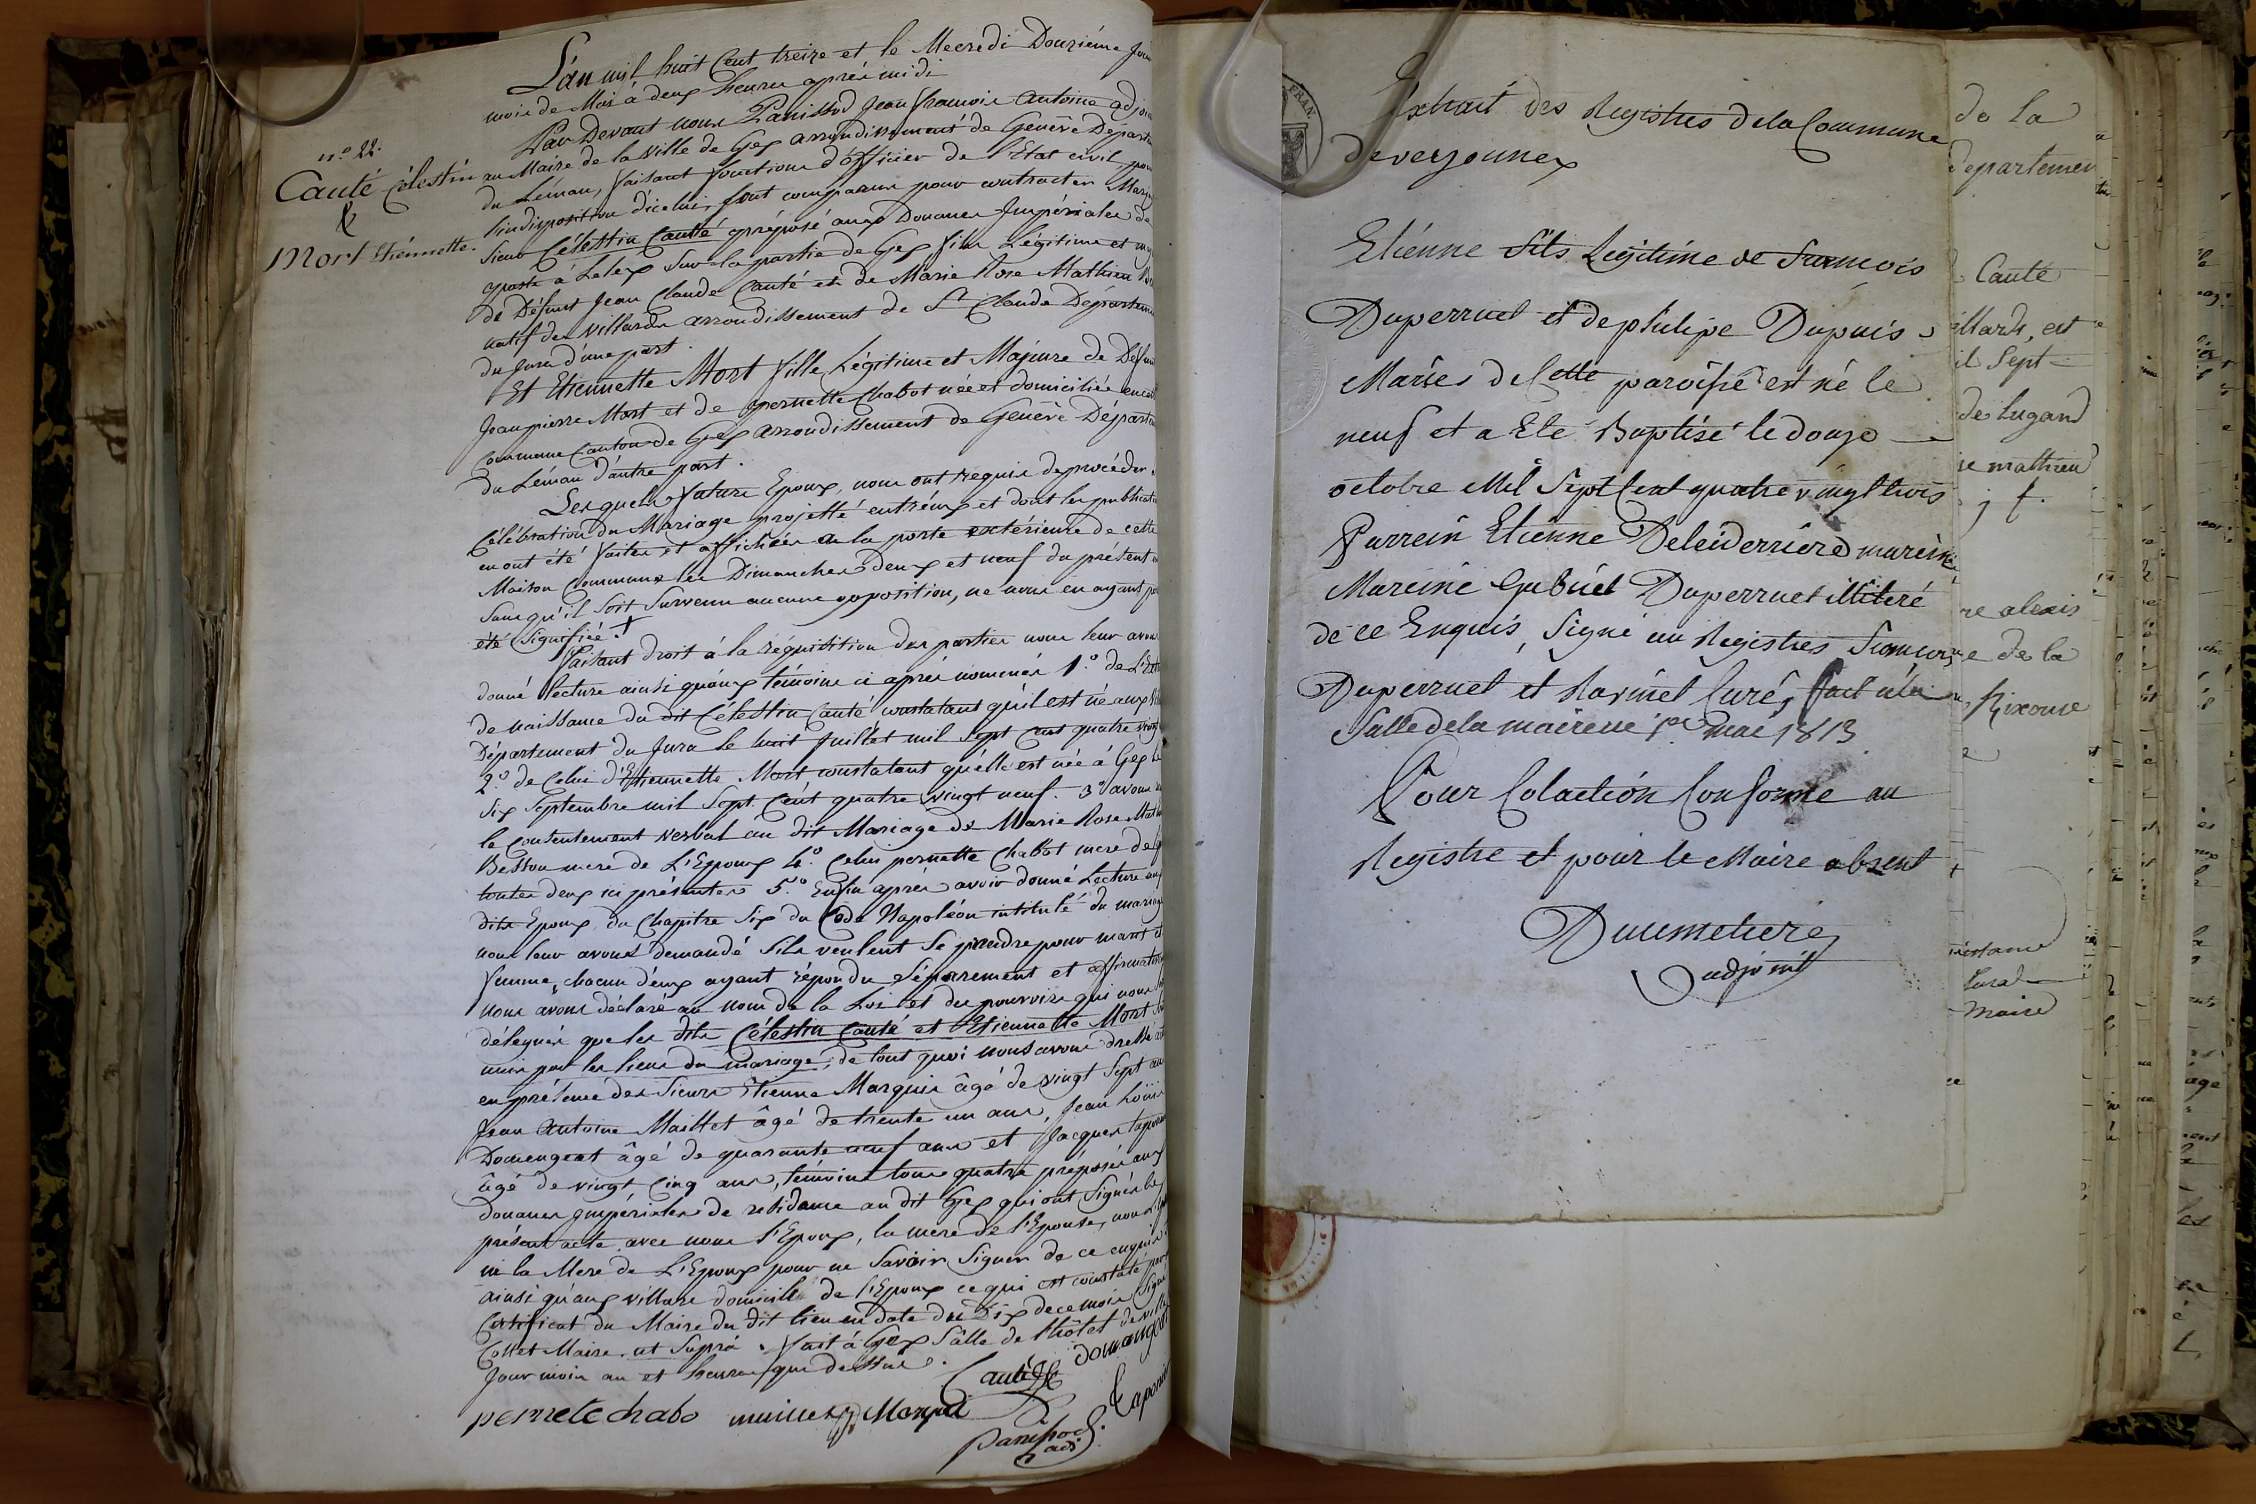 L'an mil huit Cent treize et le Mecredi Douziéme Jour
mois de Mai à deux heures après midi
Par Devant nous Panissod Jean françois antoine adjoin
au Maire de la ville de Gex arrondissement de Genêve Départ
du Léman, faisant fonctions d'officier de l'Etat civil pour
l'indisposition d'icelui, sont comparus pour contracter Maria
Sieur Célestin Cauté préposé aux Douanes Impériales de
poste à Lelex sur la partie de Gex fils Légitime et maj
de Défunt Jean Claude Cauté et de Marie Rose Mathieu
natif des villards arrondissement de St Claude Départem
du Jura d'une part.
n.º 22.
Cauté Célestin
&
Mort Etiennette.
Et Etiennette Mort fille Légitime et Majeure de Défun
Jean pierre Mort et de pernette Chabot née et domiciliée en cet
Commune Canton de Gex arrondissement de Genêve Départ
du Léman d'autre part.
Lesquels futurs Epoux, nous ont requis de procéder
Célébration du Mariage projetté entr'eux et dont les publicati
on ont été faites et affichées à la porte extérieure de cette
Maison Commune les Dimanches deux et neuf du présent
sans qu'il soit survenu aucune opposition, ne nous en ayant p
été signifiée.
faisant droit à la réquisition des parties nous leur avons
donné lecture ainsi qu'aux témoins ci après nommés 1.º de L'Ext
de naissance du dit Célestin Cauté constatant qu'il est né aux
Département du Jura le huit Juillet mil sept cent quatre vingt
2.º de Celui d'Etiennette Mort constatant qu'elle est née à Gex le
six Septembre mil Sept Cent quatre vingt neuf. 3.º avons
le consentement verbal au dit Mariage de Marie Rose Math
Besson mere de L'Epoux 4.º Celui pernette Chabot mere de
toutes deux ici présentes 5.º Enfin après avoir donné Lecture aux
dits Epoux du Chapitre six du Code Napoléon intitulé du mariage
nous leur avons demandé s'ils veulent se prendre pour mari et
femme, chacun d'eux ayant répondu séparrement et affirmativ
nous avons déclaré au nom de la Loi et du pouvoirs qui nous
délegués que les dits Célestin Cauté et Etiennette Mort
unis par les liens du mariage; de tout quoi nous avons dressé
en présence des Sieurs Etienne Marquis âgé de vingt Sept ans
Jean Antoine Maillet âgé de trente un ans, Jean Louis
Domengeat âgé de quarante neuf ans et Jacques Taponi
âgé de vingt Cinq ans, témoins tous quatre préposés aux
douanes Impériales de residance au dit Gex qui ont signés le
présent acte avec nous l'Epoux, la mere de l'Epouse, non
ni la Mere de L'Epoux pour ne Savoir Signer de ce enquis
ainsi qu'aux villars domicille de l'Epoux ce qui est constaté par
Certificat du Maire du dit lieu en Date du Dix de ce mois Signé
Collet Maire. ut Suprà. fait à Gex Salle de l'hôtel de ville
Jour mois an et heures que dessus.
Cauté domangeat
pernete chabo maillet Marquis Taponi
Panissod
adj.
Extrait des Registres de la Commune
de versonnex
Etiénne fils Legitime de François
Duperruet et de philipe Dupuis
Mariés de Cette paroisse est né le
neuf et a Eté Baptisé le douze
octobre Mil Sept Cent quatre vingt trois
Parrein Etienne Deleiderriere mareine
Mareine Gabriel Duperruet illiteré
de ce Enquis, Signé au Registres François
Duperruet et Ravinet Curé, fait à la
Salle de la mairie le 1er mai 1813
Pour Colaction Conforme au
Registre et pour le Maire absent
Dumetiere
adjoint
de la
Departemen
Cauté
illards, est
il Sept
de lugand
ie mathieu
j f.
re alexis
e de la
Rixouse
Jura
Maire